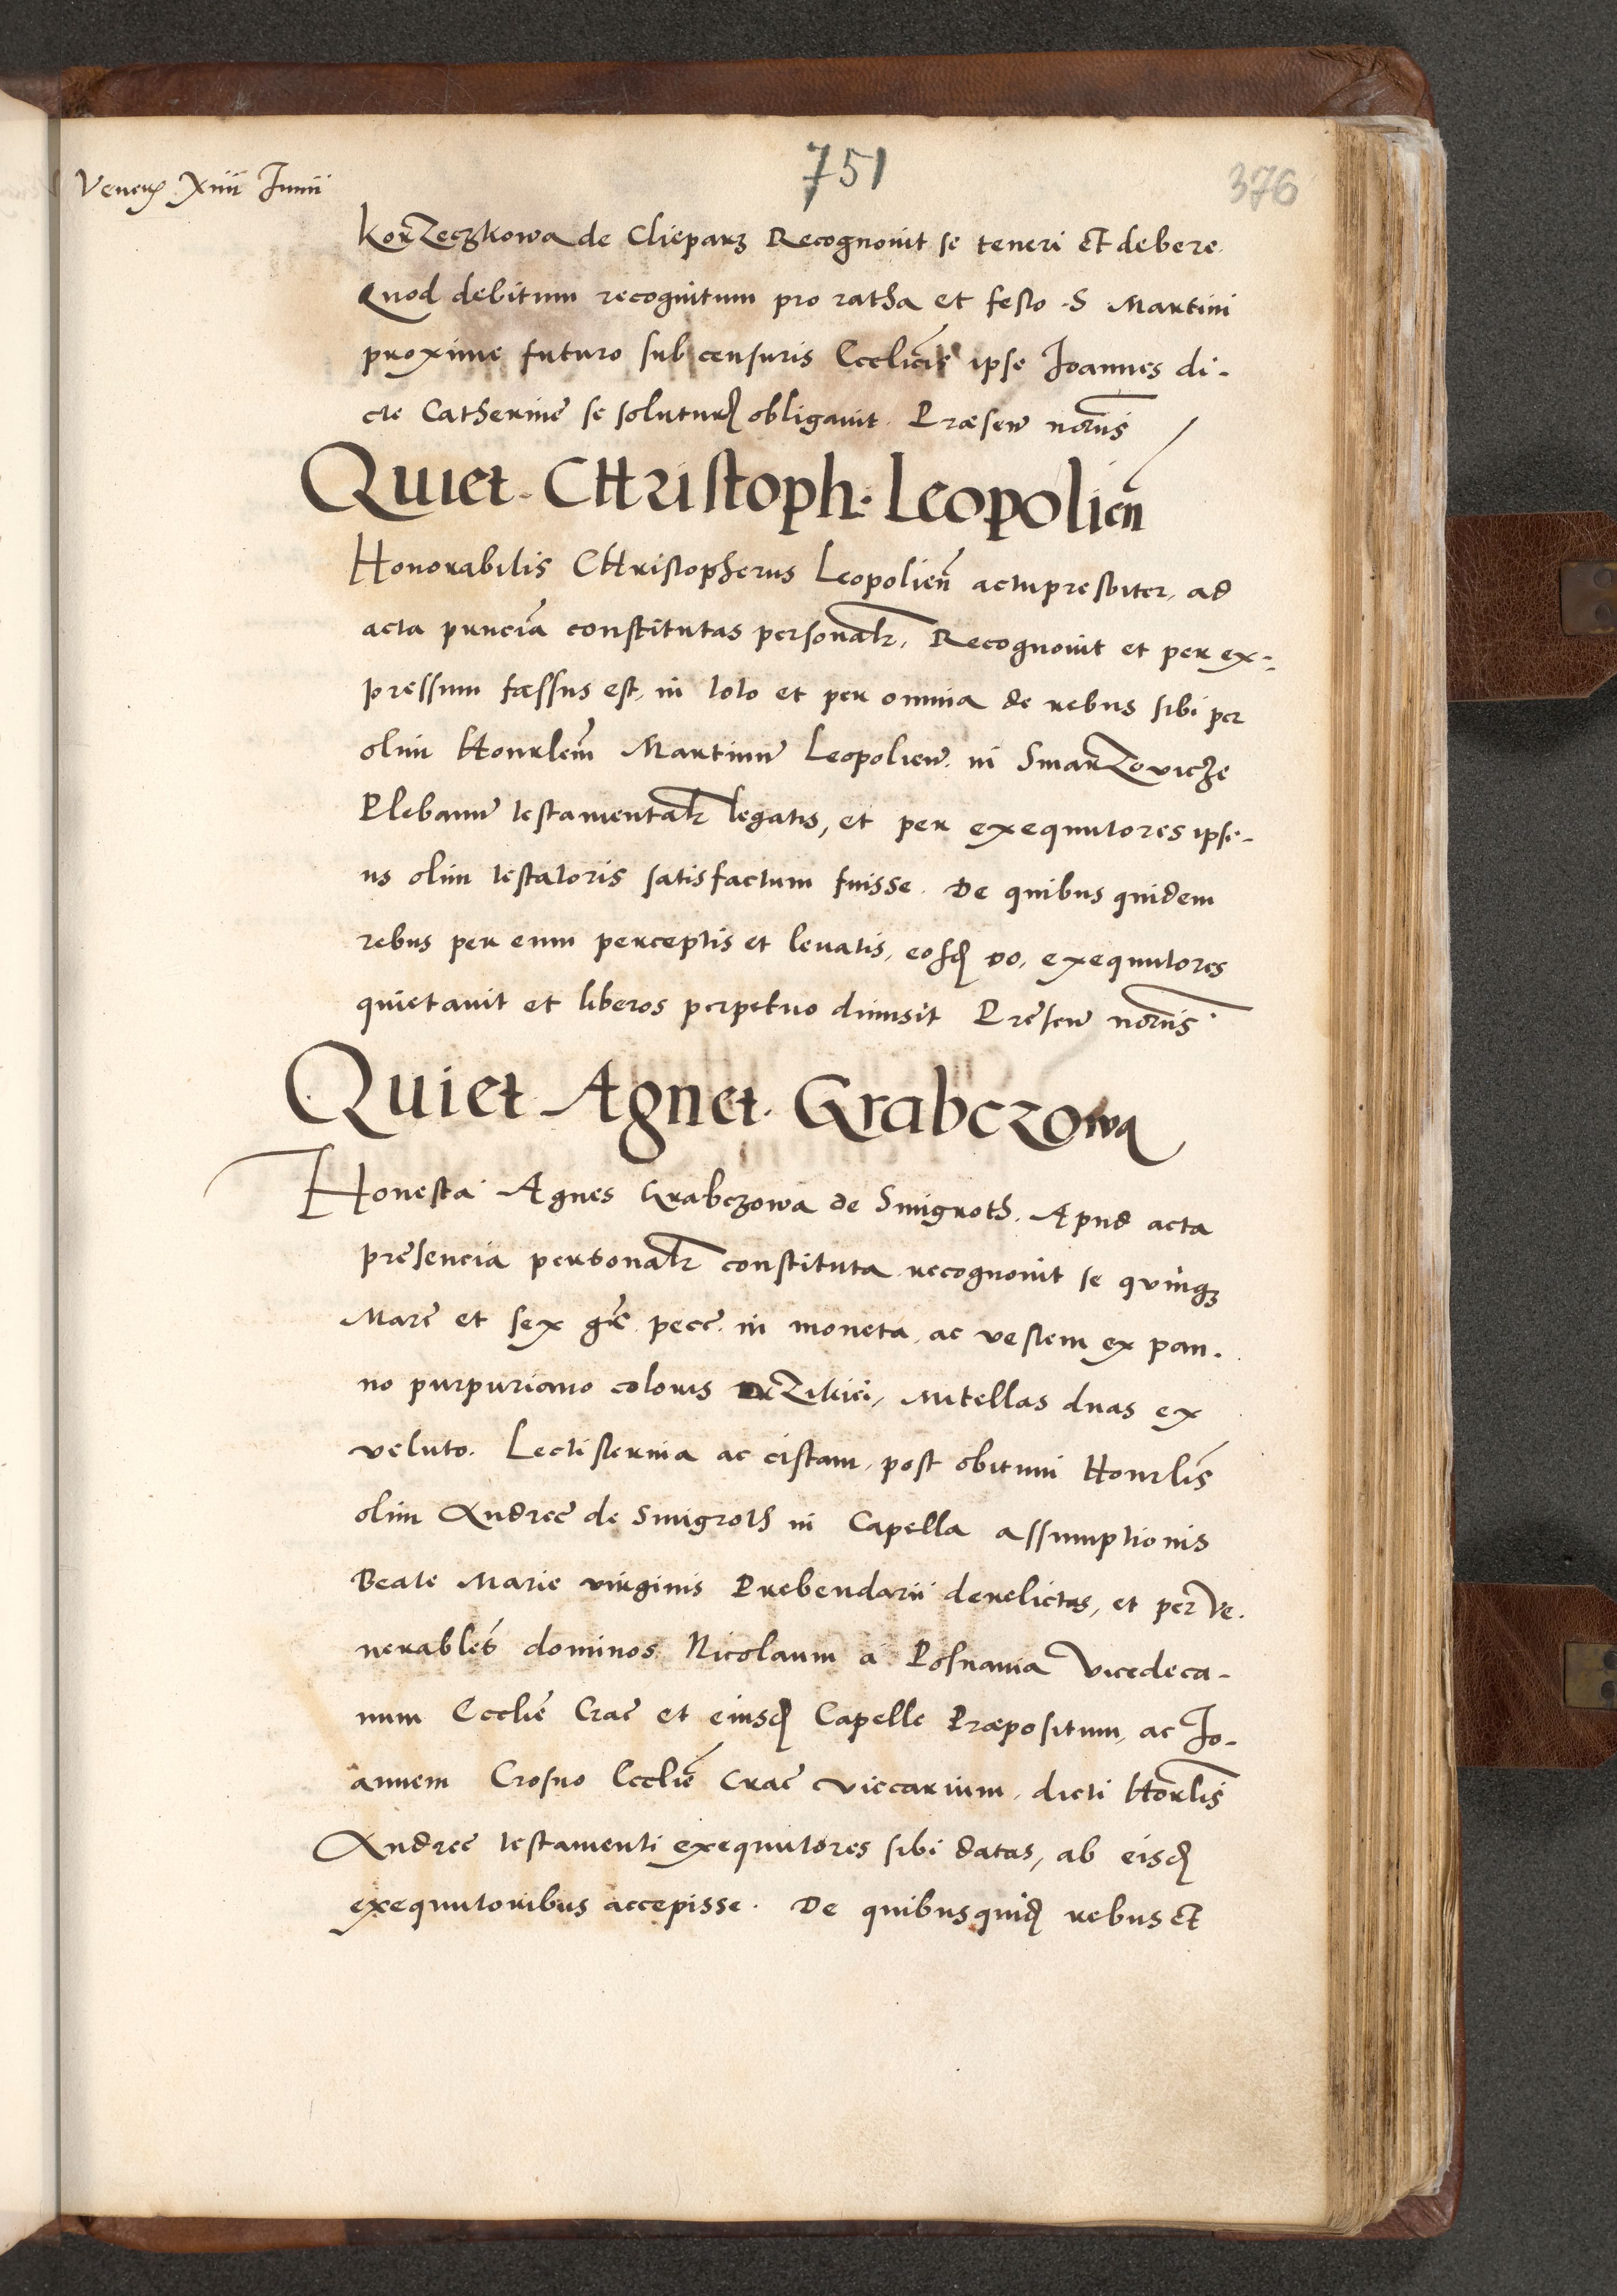 751
376
Veneris Xiiii Junii
KorZeczkowa de Clieparz Recognovit se teneri et debere
Quod debitum recognitum pro ratha et festo S Martini
proxime futuro sub censuris Ecclicis ipse Joannes di-
cte Catherine se soluturu obligavit. Præsen notariis
Quiet. CHristoph: Leopolien
Honorabilis CHristopherus Leopolien actu presbiter, ad
acta pruncia constitutas personalr, Recognovit et per ex-
pressum fassus est, in toto et per omnia de rebus sibi per
olim Honrlem Martinum Leopolien. in SmarZovicze
Plebanum testamentalr legatis, et per exequutores ipsi-
us olim testatoris satisfactum fuisse. De quibus quidem
rebus per eum perceptis et levatis, eosd do, exequutores
quietavit et liberos perpetuo dimisit Presen notariis
Quiet Agnet. Grabczowa
Honesta Agnes Grabczowa de Smigroth. Apud acta
presencia personalr constituta recognovit se quinq
Marc et sex grc pecc. in moneta, ac vestem ex pan-
no purpuriano coloris, mitellas duas ex
veluto. Lectisternia ac cistam, post obitum Honrlis
olim Andree de Smigroth in Capella assumptionis
Beate Marie virginis Prebendarii derelictas, et per Ve-
nerabiles dominos Nicolaum a Posnania Vicedeca-
num Ecclie Crac et eiusd Capelle Præpositum, ac Jo-
annem Crosno Ecclie Crac viccarium, dicti Honrlis
Andree testamenti exequutores sibi datas, ab eisd
exequutoribus accepisse. De quibus quid rebus et